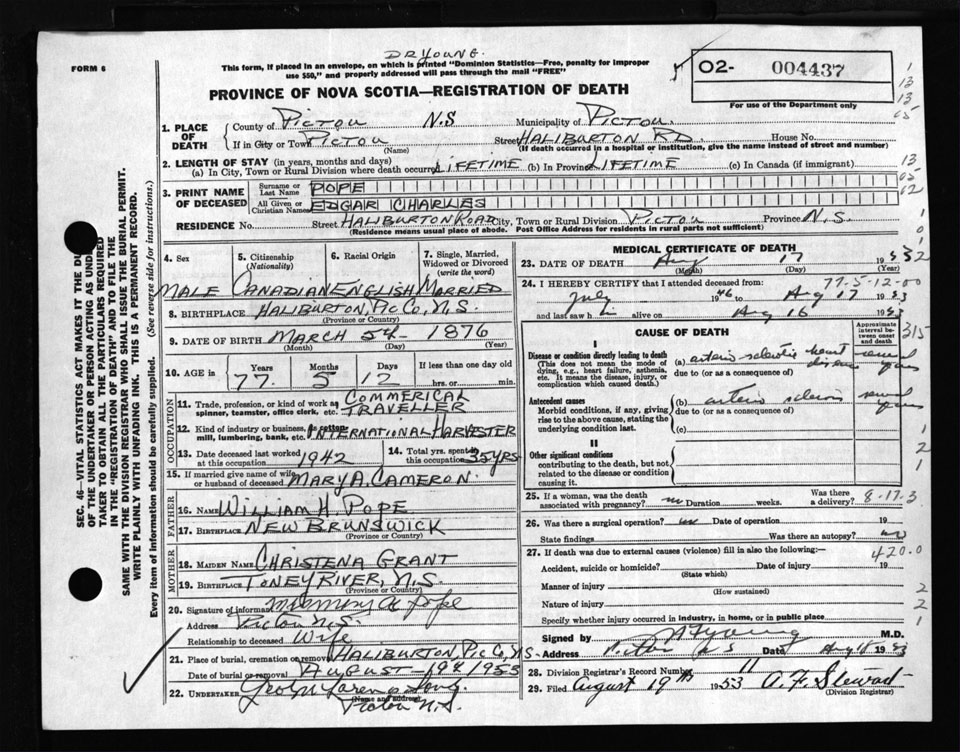 DR YOUNG.
FORM 6
This form, if placed in an envelope, on which is printed "Dominion Statistics—Free, penalty for improper
use $50," and properly addressed will pass through the mail "FREE"
02- 004437
For use of the Department only
PROVINCE OF NOVA SCOTIA—REGISTRATION OF DEATH
1. PLACE OF DEATH
County of PICTOU N.S Municipality of PICTOU
If in City or Town PICTOU (Name) Street HALIBURTON RD House No.
(If death occurred in a hospital or institution, give the name instead of street and number)
2. LENGTH OF STAY (in years, months and days)
(a) In City, Town or Rural Division where death occurred LIFETIME (b) In Province LIFETIME (c) In Canada (if immigrant)
3. PRINT NAME OF DECEASED
Surname or Last Name POPE
All Given or Christian Names EDGAR CHARLES
RESIDENCE No. Street HALIBURTON ROAD City, Town or Rural Division PICTOU Province N.S.
(Residence means usual place of abode. Post Office Address for residents in rural parts not sufficient)
4. Sex
5. Citizenship (Nationality)
6. Racial Origin
7. Single, Married, Widowed or Divorced (write the word)
MALE CANADIAN ENGLISH MARRIED
8. BIRTHPLACE HALIBURTON, PIC CO, N.S.
(Province or Country)
9. DATE OF BIRTH MARCH 5th 1876
(Month) (Day) (Year)
10. AGE in Years Months Days If less than one day old
77. 5 12 hrs. or min.
OCCUPATION
11. Trade, profession, or kind of work as spinner, teamster, office clerk, etc. COMMERICAL TRAVELLER
12. Kind of industry or business, as cotton-mill, lumbering, bank, etc. INTERNATIONAL HARVESTER
13. Date deceased last worked at this occupation 1942
14. Total yrs. spent in this occupation 35 YRS
15. If married give name of wife or husband of deceased MARY A. CAMERON
FATHER
16. NAME WILLIAM H. POPE
17. BIRTHPLACE NEW BRUNSWICK
(Province or Country)
MOTHER
18. MAIDEN NAME CHRISTENA GRANT
19. BIRTHPLACE TONEY RIVER, N.S.
(Province or Country)
20. Signature of informant Mrs Mary A Pope
Address Pictou N.S.
Relationship to deceased Wife
21. Place of burial, cremation or removal HALIBURTON, PIC CO, N.S-
Date of burial or removal AUGUST-19th 1953
22. UNDERTAKER
(Name and address)
Pictou N.S.
MEDICAL CERTIFICATE OF DEATH
23. DATE OF DEATH Aug 17 1953
(Month) (Day) (Year)
24. I HEREBY CERTIFY that I attended deceased from:
July 1946 to Aug 17 1953
and last saw h i alive on Aug 16 1953
CAUSE OF DEATH
Approximate interval between onset and death
I
Disease or condition directly leading to death
(This does not mean the mode of dying, e.g., heart failure, asthenia, etc. It means the disease, injury, or complication which caused death.)
(a) arterio sclerotic heart disease several years
due to (or as a consequence of)
Antecedent causes
Morbid conditions, if any, giving rise to the above cause, stating the underlying condition last.
(b) arterio sclerosis several years
due to (or as a consequence of)
(c)
II
Other significant conditions
contributing to the death, but not related to the disease or condition causing it.
25. If a woman, was the death associated with pregnancy? no Duration weeks. Was there a delivery?
26. Was there a surgical operation? no Date of operation 19
State findings Was there an autopsy? no
27. If death was due to external causes (violence) fill in also the following:—
Accident, suicide or homicide? Date of injury 19
(State which)
Manner of injury
(How sustained)
Nature of injury
Specify whether injury occurred in industry, in home, or in public place
Signed by M.D.
Address Pictou N S Date Aug 18 1953
28. Division Registrar's Record Number 11
29. Filed August 19th 1953 A. F. Steward
(Division Registrar)
SEC. 46—VITAL STATISTICS ACT MAKES IT THE
OF THE UNDERTAKER OR PERSON ACTING AS UNDER
TAKER TO OBTAIN ALL THE PARTICULARS REQUIRED
IN THE "REGISTRATION OF DEATH" AND TO FILE THE
SAME WITH THE DIVISION REGISTRAR WHO SHALL ISSUE THE BURIAL PERMIT.
WRITE PLAINLY WITH UNFADING INK. THIS IS A PERMANENT RECORD.
Every item of information should be carefully supplied. (See reverse side for instructions.)
1
13
13
65
13
05
02
1
0
1
52
77-5-12-00
315
1
2
1
8-17.3
420.0
2
2
1